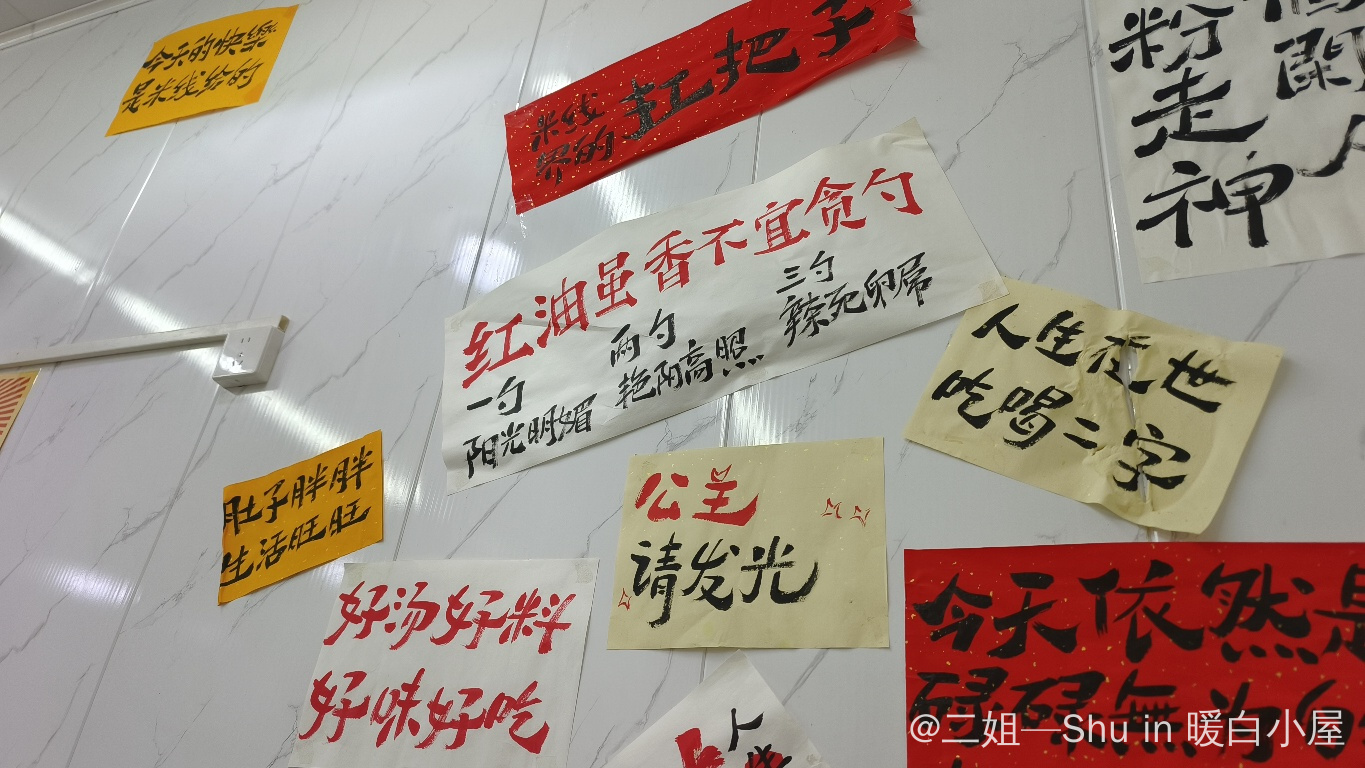 今天的快樂
是米线给的
米线
界的
扛把子
粉
走
神
開
红油虽香不宜贪勺
一勺
阳光明媚
两勺
艳阳高照
三勺
辣死卵屌
人生在世
吃喝二字
肚子胖胖
生活旺旺
公主
请发光
好汤好料
好味好吃
今天依然是
碌碌無为的
@二姐—Shu in 暖白小屋